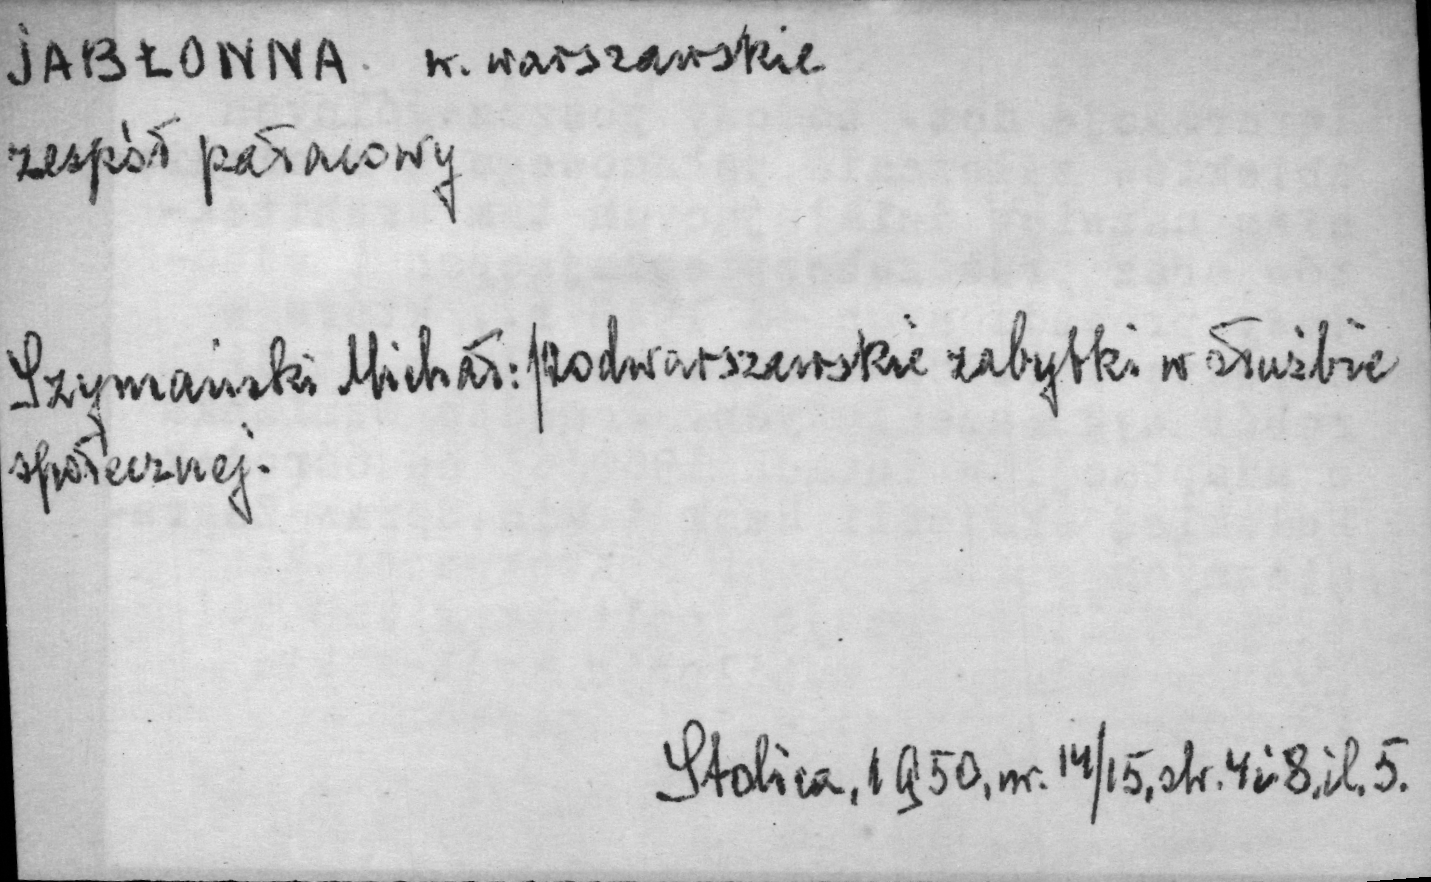 JABŁONNA w. warszawskie
zespół pałacowy
Szymański Michał: Podwarszawskie zabytki w służbie
społecznej.
Stolica, 1950, nr. 14/15, str. 4 i 8, il. 5.